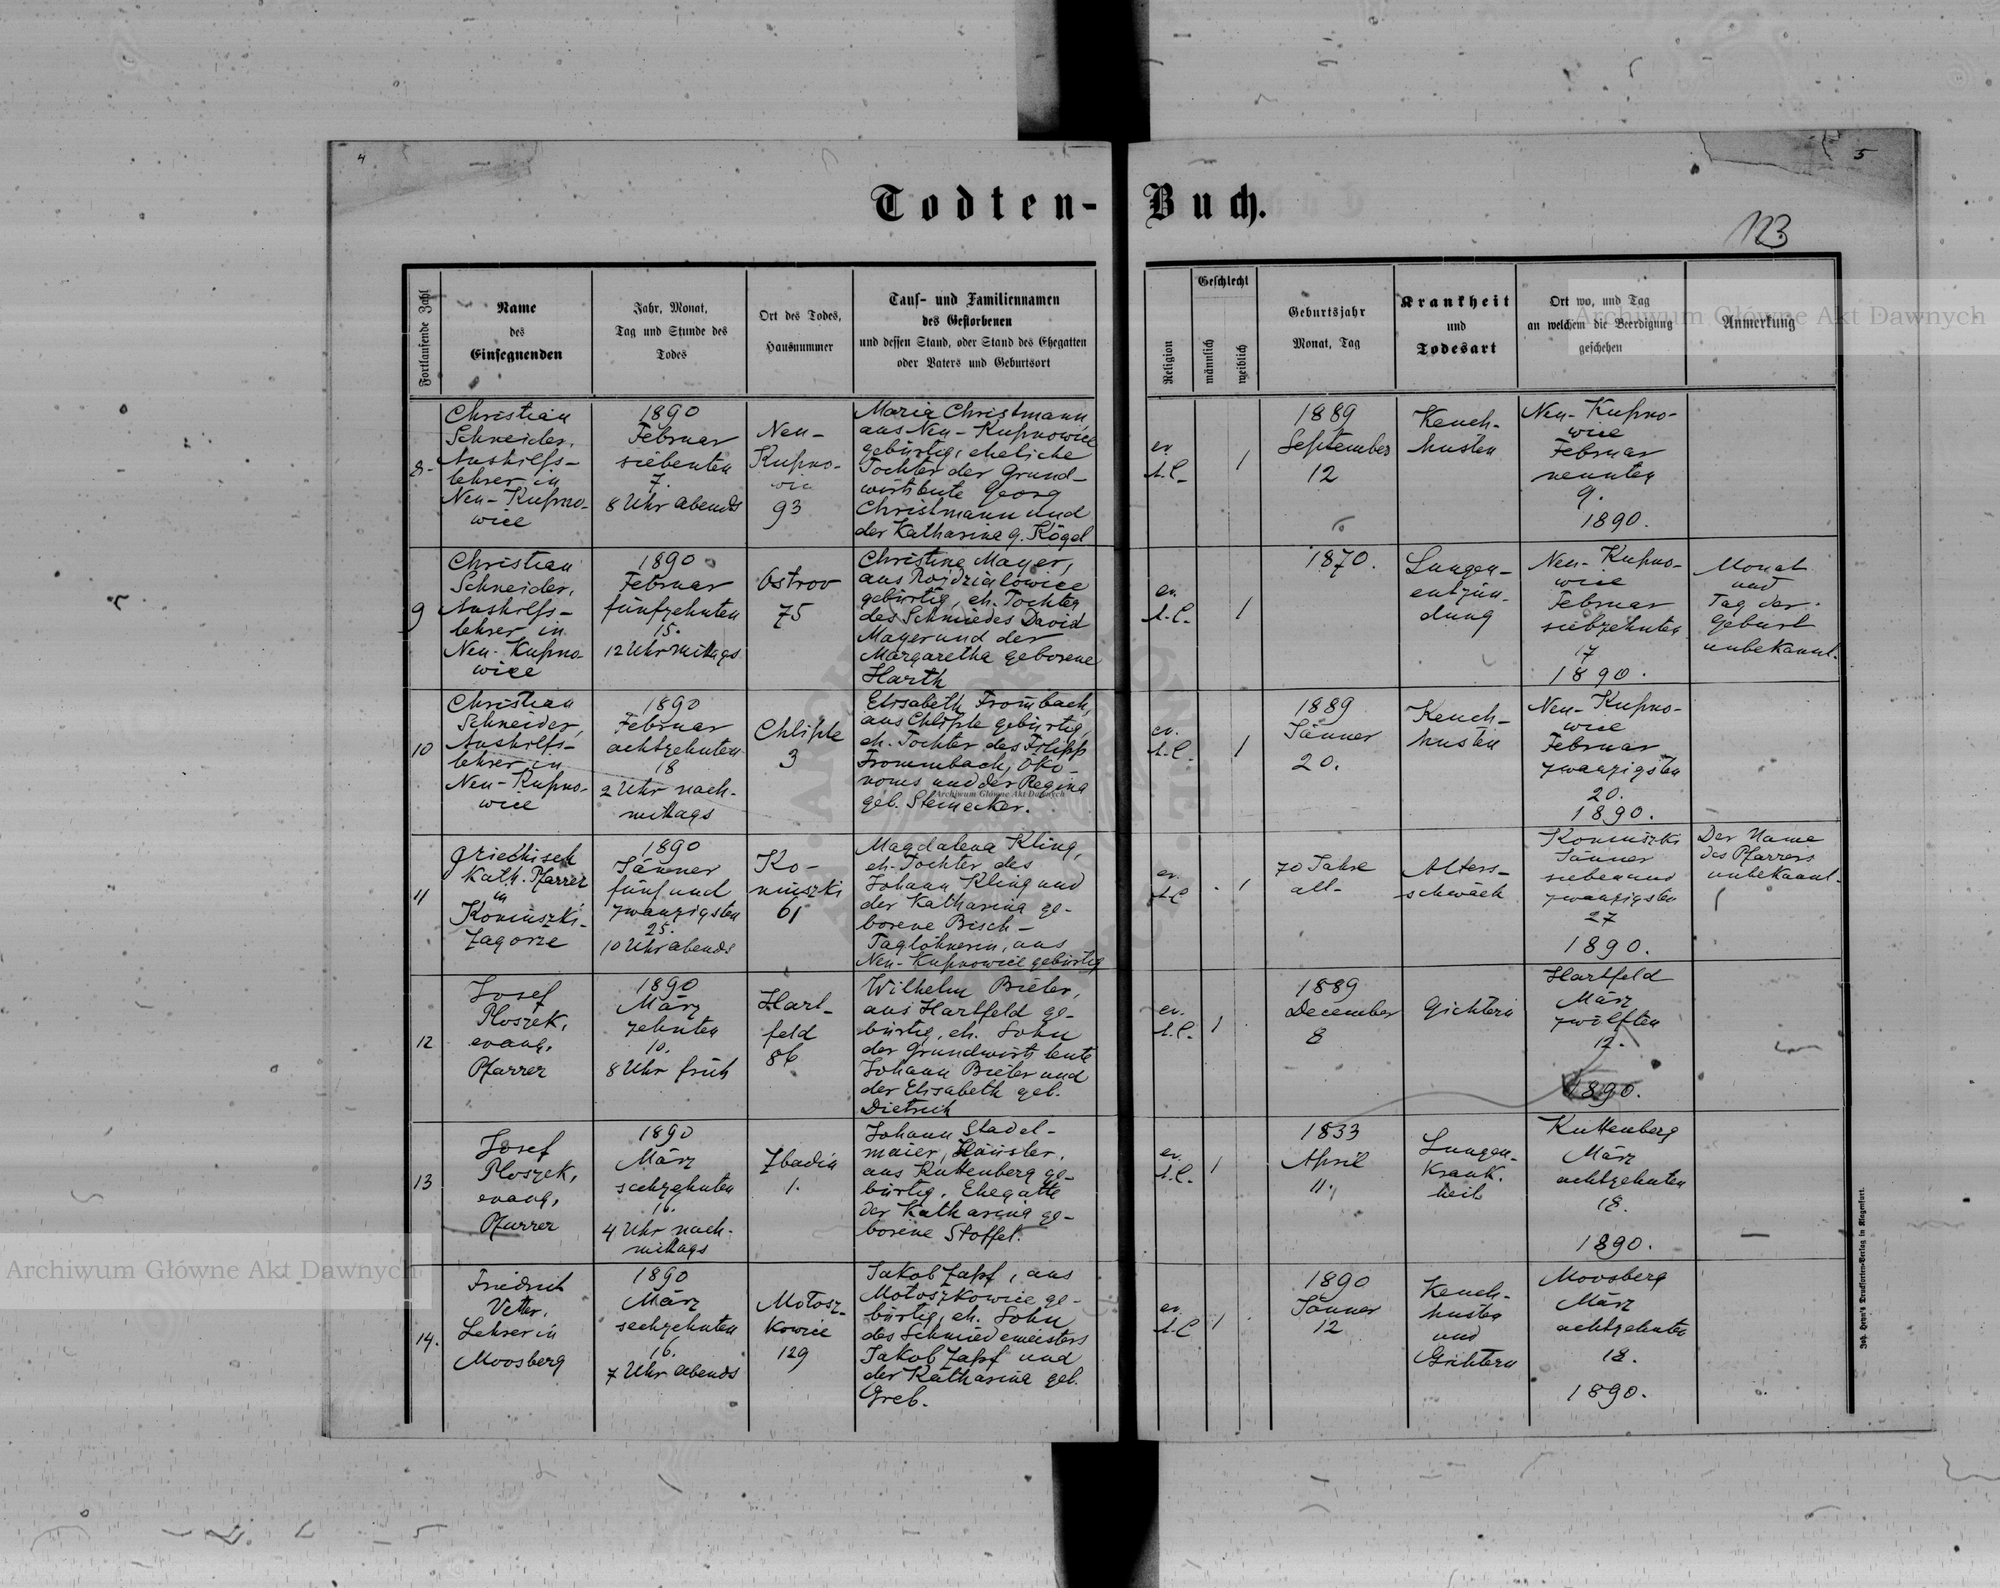 4
5
Todten-Buch.
123
Fortlaufende Zahl
Name
des
Einsegnenden
Jahr, Monat,
Tag und Stunde des
Todes
Ort des Todes,
Hausnummer
Tauf- und Familiennamen
des Gestorbenen
und dessen Stand, oder Stand des Ehegatten
oder Vaters und Geburtsort
Religion
Geschlecht
männlich
weiblich
Geburtsjahr
Monat, Tag
Krankheit
und
Todesart
Ort wo, und Tag
an welchem die Beerdigung
geschehen
Anmerkung
8.
Christian
Schneider,
Aushilfs-
lehrer in
Neu-Kupno-
wice
1890
Februar
siebenten
7.
8 Uhr abends
Neu-
Kupno-
wic
93
Maria Christmann
aus Neu-Kupnowice
gebürtig, eheliche
Tochter der Grund-
wirtsleute Georg
Christmann und
der Katharina g. Kögel
ev.
A.C.
1
1889
September
12
Keuch-
husten
Neu-Kupno-
wice
Februar
neunten
9.
1890.
9
Christian
Schneider,
Aushilfs-
lehrer in
Neu-Kupno-
wice
1890
Februar
fünfzehnten
15.
12 Uhr mittags
Ostrov
75
Christine Mayer,
aus Rojdzialowice
gebürtig, eh. Tochter
des Schmiedes David
Mayer und der
Margaretha geborene
Harth
ev.
A.C.
1
1870.
Lungen-
entzün-
dung
Neu-Kupno-
wice
Februar
siebzehnten
17
1890.
Monat
und
Tag der
Geburt
unbekannt.
10
Christian
Schneider,
Aushilfs-
lehrer in
Neu-Kupno-
wice
1890
Februar
achtzehnten
18
2 Uhr nach-
mittags
Chliple
3
Elisabeth Frombach,
aus Chliple gebürtig,
eh. Tochter des Filipp
Frommbach, Öko-
noms und der Regina
geb. Steinecker.
ev.
A.C.
1
1889
Jänner
20.
Keuch-
husten
Neu-Kupno-
wice
Februar
zwanzigsten
20.
1890.
11
Griechisch
Kath. Pfarrer
in
Koniuszki-
Zagorze
1890
Jänner
fünf und
zwanzigsten
25.
10 Uhr abends
Ko-
niuszki
61
Magdalena Kling,
eh. Tochter des
Johann Kling und
der Katharina ge-
borene Bisch-
Taglöhnerin, aus
Neu-Kupnowice gebürtig
ev.
A.C
1
70 Jahre
alt-
Alters-
schwäch
Koniuszki
Jänner
siebenund
zwanzigsten
27
1890.
Der Name
des Pfarrers
unbekannt.
12
Josef
Ploszek,
evang.
Pfarrer
1890
März
zehnten
10.
8 Uhr früh
Hart-
feld
86
Wilhelm Bieler,
aus Hartfeld ge-
bürtig, eh. Sohn
der Grundwirtsleute
Johann Bieler und
der Elisabeth geb.
Dietrich
ev.
A.C.
1
1889
December
8
Gichtern
Hartfeld
März
zwölften
12.
1890.
13
Josef
Ploszek,
evang.
Pfarrer
1890
März
sechzehnten
16.
4 Uhr nach-
mittags
Zbadin
1.
Johann Stadel-
maier, Häusler,
aus Kuttenberg ge-
bürtig, Ehegatte
der Katharina ge-
borene Stoffel.
ev.
A.C.
1
1833
April
11.
Lungen-
krank-
heit
Kuttenberg
März
achtzehnten
18.
1890.
14.
Friedrich
Vetter,
Lehrer in
Moosberg
1890
März
sechzehnten
16.
7 Uhr abends
Motosz-
kowice
129
Jakob Zapf, aus
Motoszkowice ge-
bürtig, eh. Sohn
des Schmiedemeisters
Jakob Zapf und
der Katharina geb.
Greb.
ev.
A.C
1
1890
Jänner
12
Keuch-
husten
und
Gichtern
Moosberg
März
achtzehnten
18.
1890.
Archiwum Główne Akt Dawnych
Archiwum Główne Akt Dawnych
Archiwum Główne Akt Dawnych